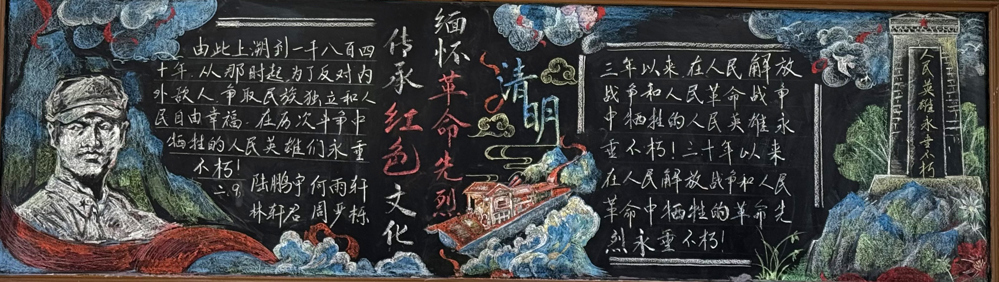 由此上溯到一千八百四
十年,从那时起,为了反对内
外敌人,争取民族独立和人
民自由幸福,在历次斗争中
牺牲的人民英雄们永垂
不朽!
二.9. 陆鹏宇 何雨轩
林轩君
缅怀革命先烈
传承红色文化
清明
三年以来,在人民解放
战争和人民革命战争
中牺牲的人民英雄永
垂不朽!三十年以来
在人民解放战争和人民
革命中牺牲的革命先
烈永垂不朽!
人民英雄永垂不朽